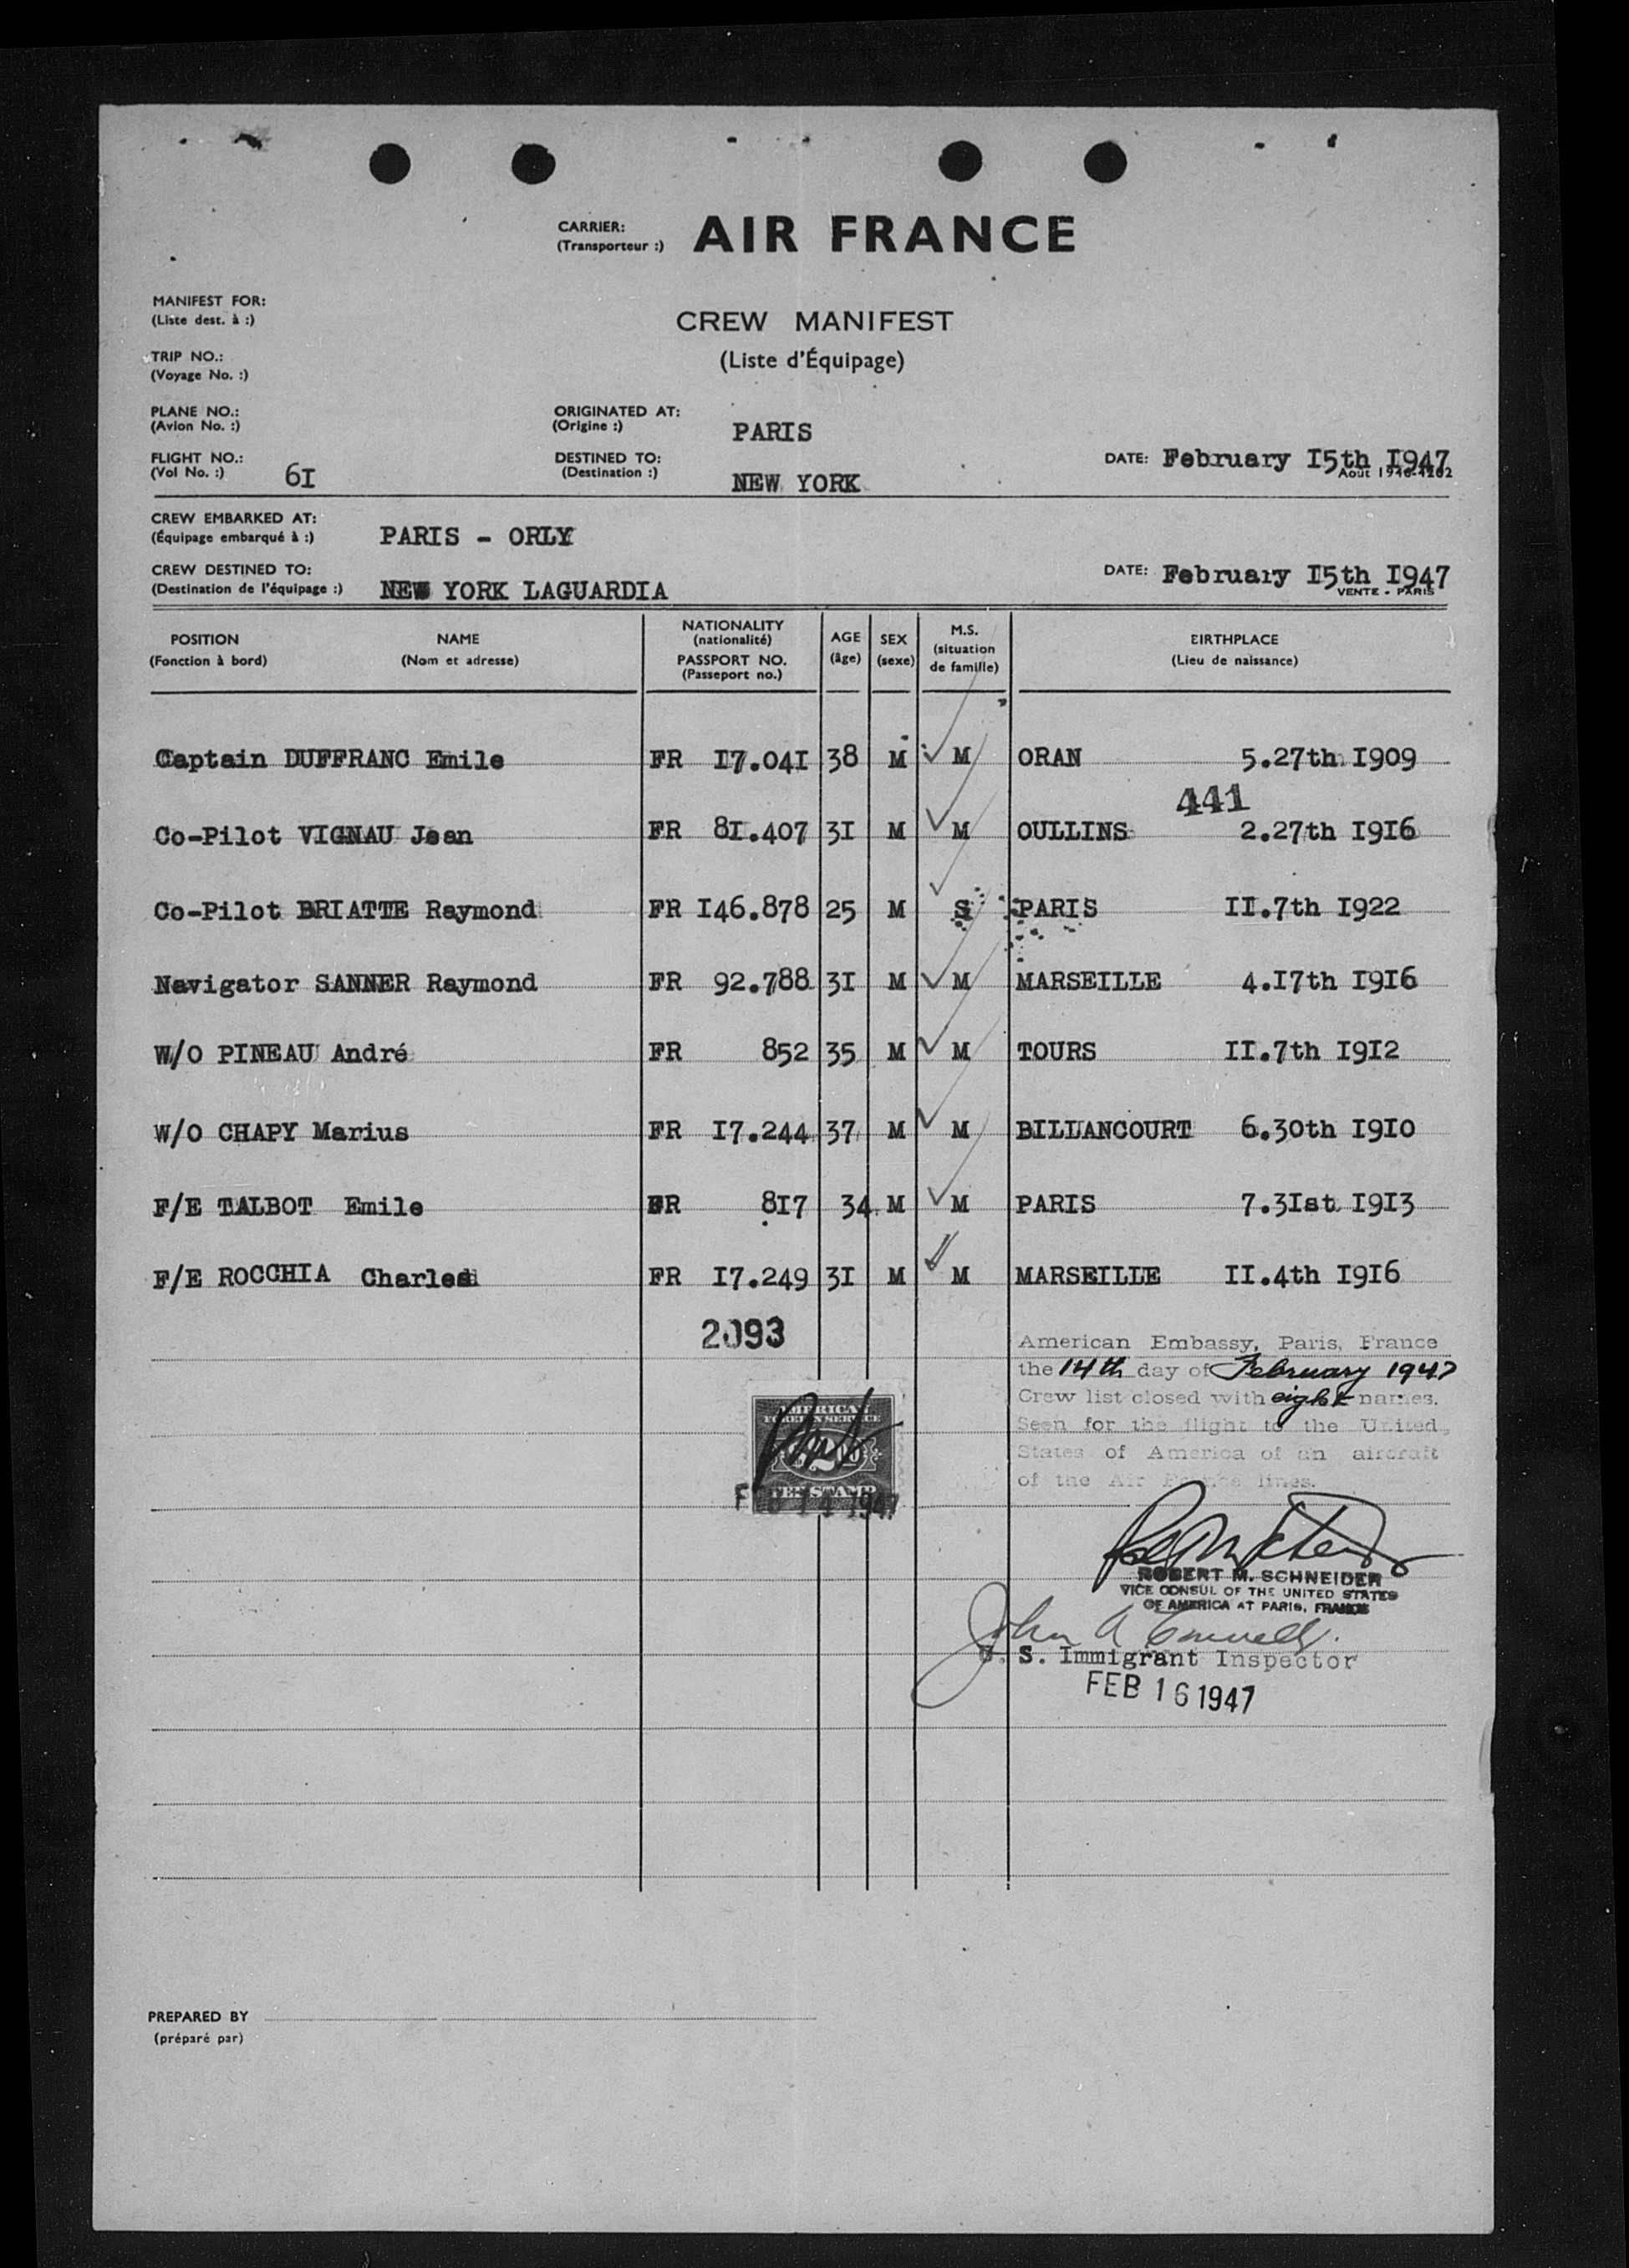 CARRIER: AIR FRANCE
(Transporteur :)
MANIFEST FOR:
(Liste dest. à :)
CREW MANIFEST
(Liste d'Équipage)
TRIP NO.:
(Voyage No. :)
PLANE NO.:
(Avion No. :)
ORIGINATED AT:
(Origine :) PARIS
FLIGHT NO.:
(Vol No. :) 6I
DESTINED TO:
(Destination :) NEW YORK
DATE: February I5th I947
Août 1946-4262
CREW EMBARKED AT:
(Équipage embarqué à :) PARIS - ORLY
CREW DESTINED TO:
(Destination de l'équipage :) NEW YORK LAGUARDIA
DATE: February I5th I947
VENTE - PARIS
POSITION
(Fonction à bord)
NAME
(Nom et adresse)
NATIONALITY
(nationalité)
PASSPORT NO.
(Passeport no.)
AGE
(âge)
SEX
(sexe)
M.S.
(situation
de famille)
BIRTHPLACE
(Lieu de naissance)
Captain DUFFRANC Emile FR I7.04I 38 M M ORAN 5.27th I909
441
Co-Pilot VIGNAU Jean FR 8I.407 3I M M OULLINS 2.27th I9I6
Co-Pilot BRIATTE Raymond FR I46.878 25 M S PARIS II.7th I922
Navigator SANNER Raymond FR 92.788 3I M M MARSEILLE 4.I7th I9I6
W/O PINEAU André FR 852 35 M M TOURS II.7th I9I2
W/O CHAPY Marius FR I7.244 37 M M BILLANCOURT 6.30th I9I0
F/E TALBOT Emile FR 8I7 34 M M PARIS 7.3Ist I9I3
F/E ROCCHIA Charles FR I7.249 3I M M MARSEILLE II.4th I9I6
2093
American Embassy, Paris, France
the 14th day of February 1947
Crew list closed with eight names.
Seen for the flight to the United
States of America of an aircraft
of the Air France lines.
AMERICAN
FOREIGN SERVICE
$2.00
FEE STAMP
FEB 14 1947
ROBERT M. SCHNEIDER
VICE CONSUL OF THE UNITED STATES
OF AMERICA AT PARIS, FRANCE
U. S. Immigrant Inspector
FEB 16 1947
PREPARED BY
(préparé par)